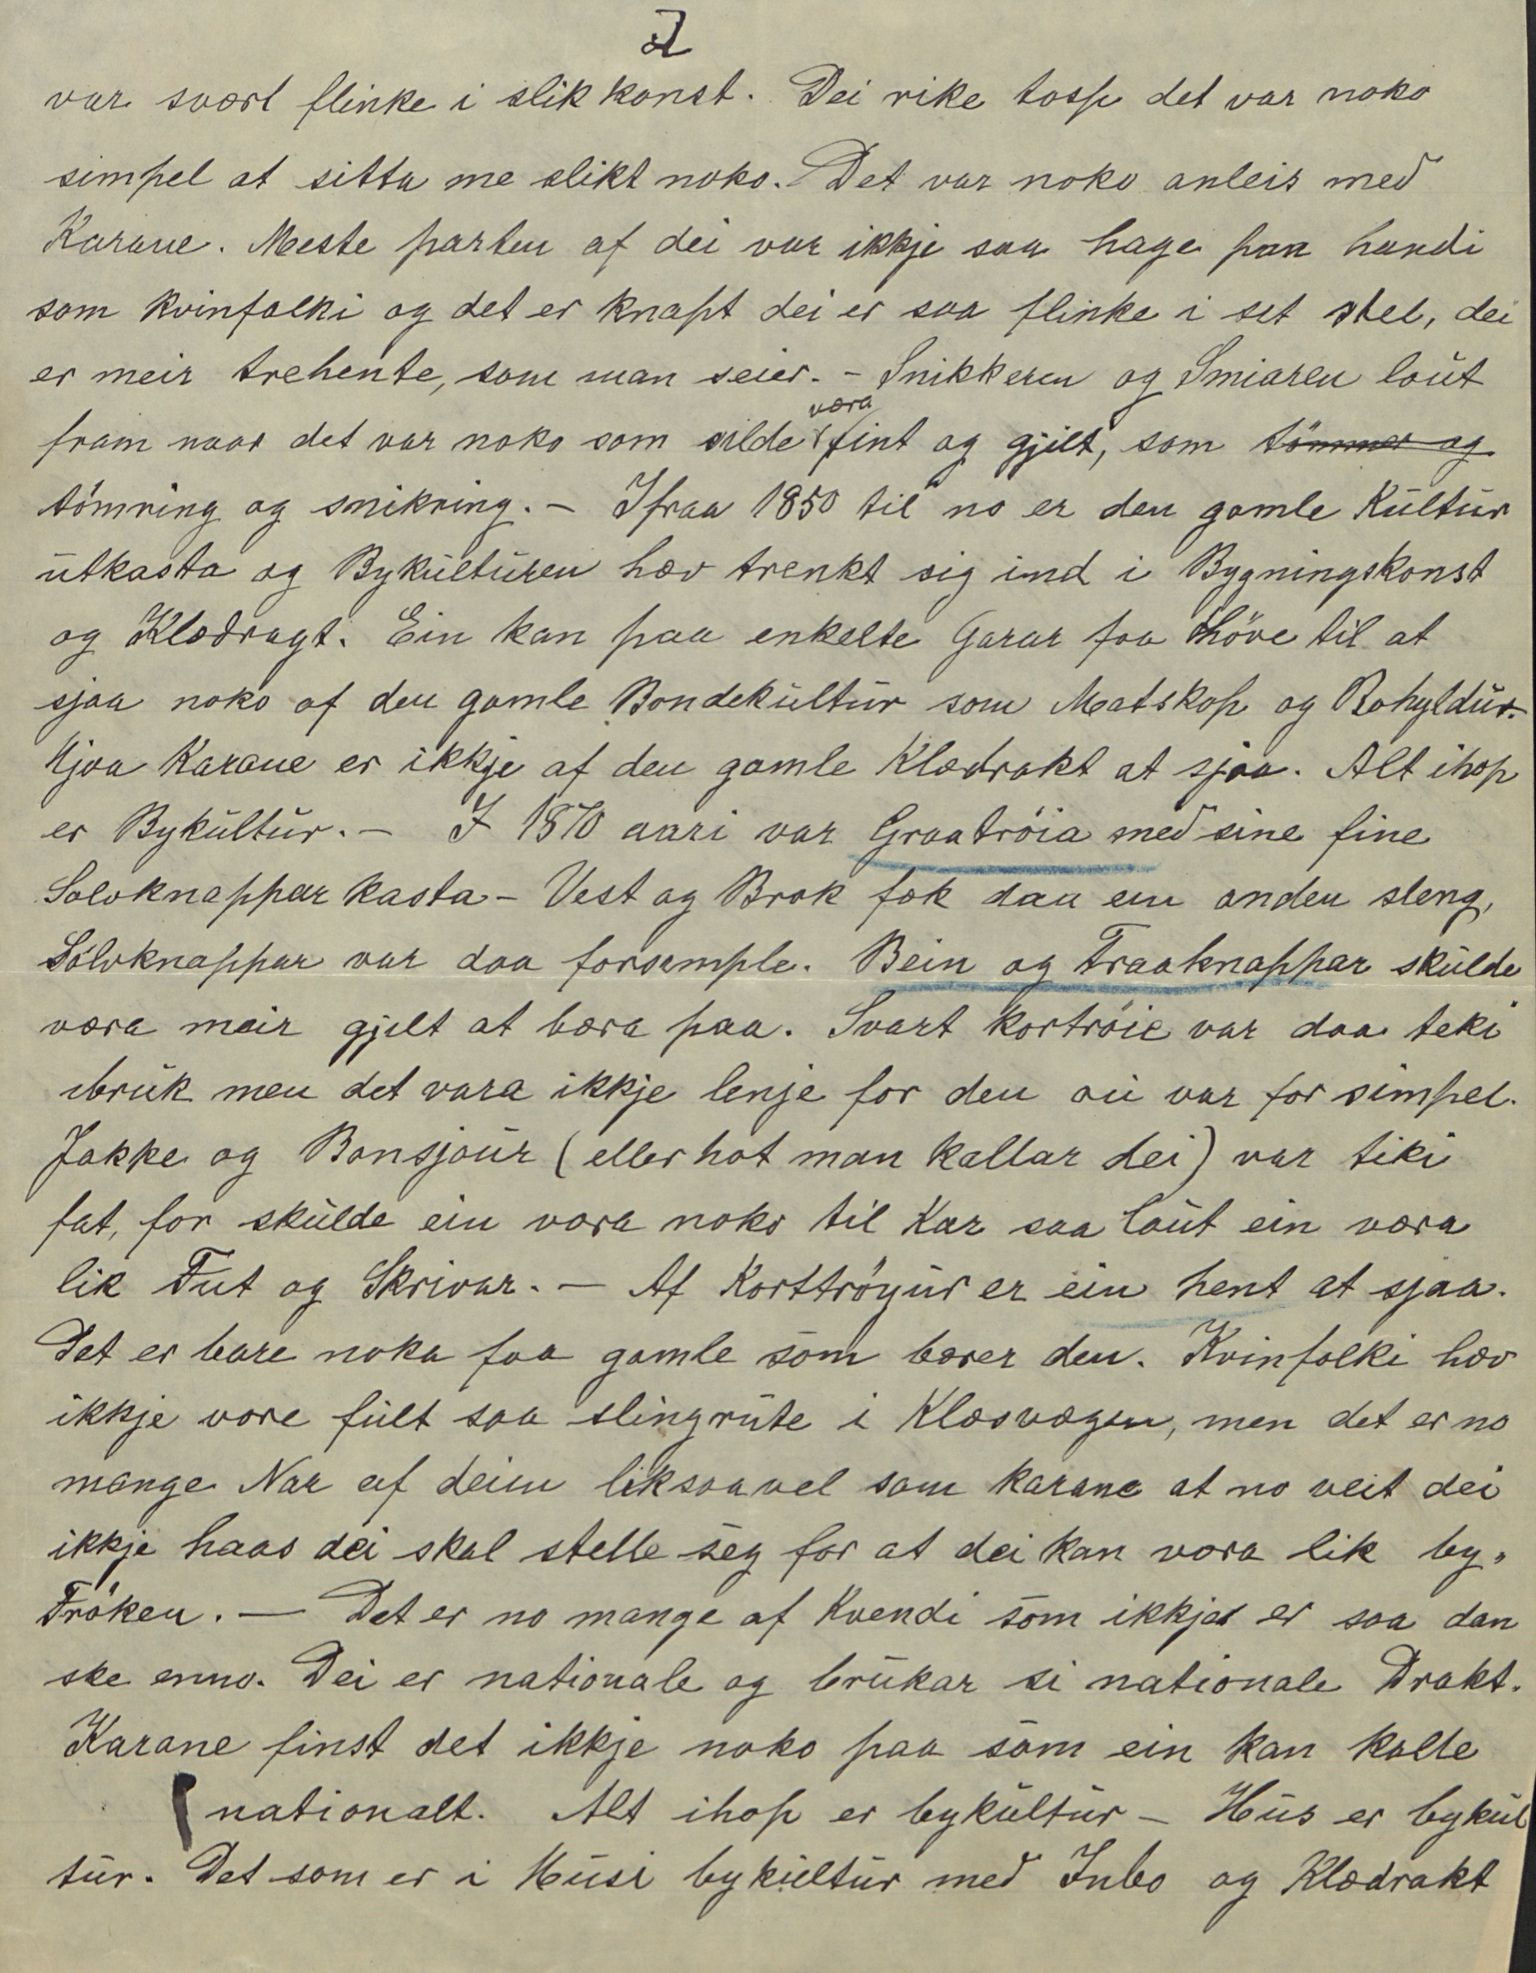 2
var svært flinke i slik konst. Dei rike tosse det var noko
simpel at sitta me slikt noko. Det var noko anleis med
Karane. Meste parten af dei var ikkje saa hage paa handi
som kvinfolki og det er knapt dei er saa flinke i set stel, dei
er meir trehente, som man seier. - Snikkeren og Smiaren lout
fram naar det var noko som silde væra fint og gjilt, som tömmer og
tömring og snikring. - Ifraa 1850 til no er den gamle Kultur
utkasta og Bykulturen hæv trenkt sig ind i Bygningskonst
og Klædragt. Ein kan paa enkelte Garar faa höve til at
sjaa noko af den gamle Bondekultur som Matskap og Bohyldur.
Hjaa Karane er ikkje af den gamle Klædrakt at sjaa. Alt ihop
er Bykultur. - I 1870 aari var Graatröia med sine fine
Sølvknappar kasta - Vest og Brok fæk daa ein anden sleng,
Sölvknappar var daa forsemple. Bein og Traaknappar skulde
væra meir gjilt at bæra paa. Svart Kortröie var daa teki
ibruk men det vara ikkje lenje for den au var for simpel.
Jakke og Bonsjour (eller hot man kallar dei) var tiki
fat, for skulde ein væra noko til Kar saa lout ein væra
lik Fut og Skrivar. - Af Korttröyur er ein hent at sjaa.
Det er bare noka faa gamle som bærer den. Kvinfolki hæv
ikkje være fult saa slingrute i Klæsvægen, men det er no
mange Nar af deim liksaavel som Karane at no veit dei
ikkje haas dei skal stelle seg for at dei kan væra lik by„
Fröken. - Det er no mange af Kvendi som ikkje er saa dan
ske enno. Dei er nationale og brukar si nationale Drakt.
Karane finst det ikkje noko paa som ein kan kalle
nationalt. Alt ihop er bykultur - Hus er bykul
tur. Det som er i Husi bykultur med Inbo og Klædrakt